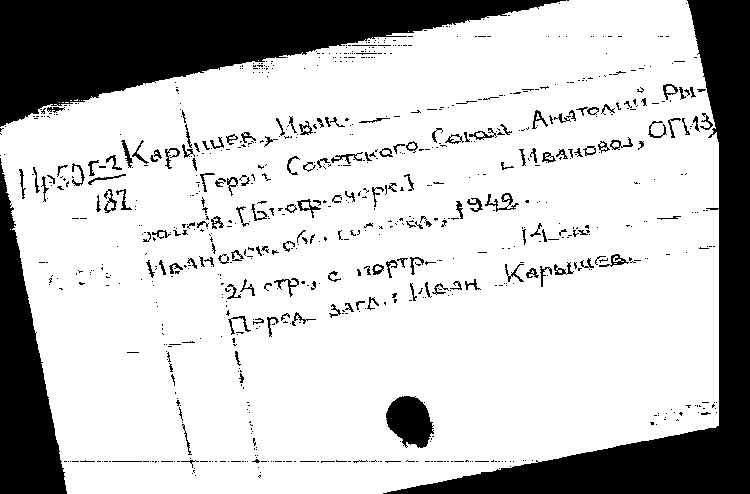 Пр50Г-2 Карышев, Иван.
187 Герой Советского Союза Анатолий Ры-
жиков. [Биогр. очерк.] – [Иваново], ОГИЗ,
Ивановск. обл. гос. изд., 1942.
24 стр., с портр. 14 см
Перед загл.: Иван Карышев.